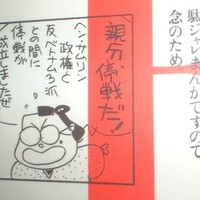 駄ジャレまんがですので
念のため。
親分、停戦だ!
ヘン・サムリン
政権と
反ベトナム3派
との間に
停戦が
成立しましたぜ